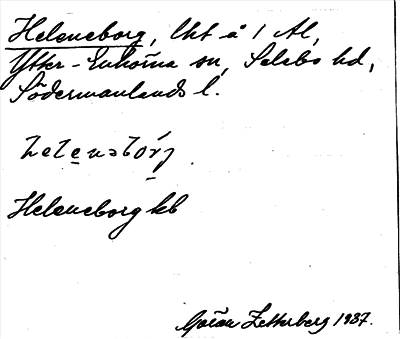 Heleneborg, lht å 1 Al,
Ytter-Enhörna sn, Selebo hd,
Södermanlands l.
Heleneborg kb
Göran Zetterberg 1937.